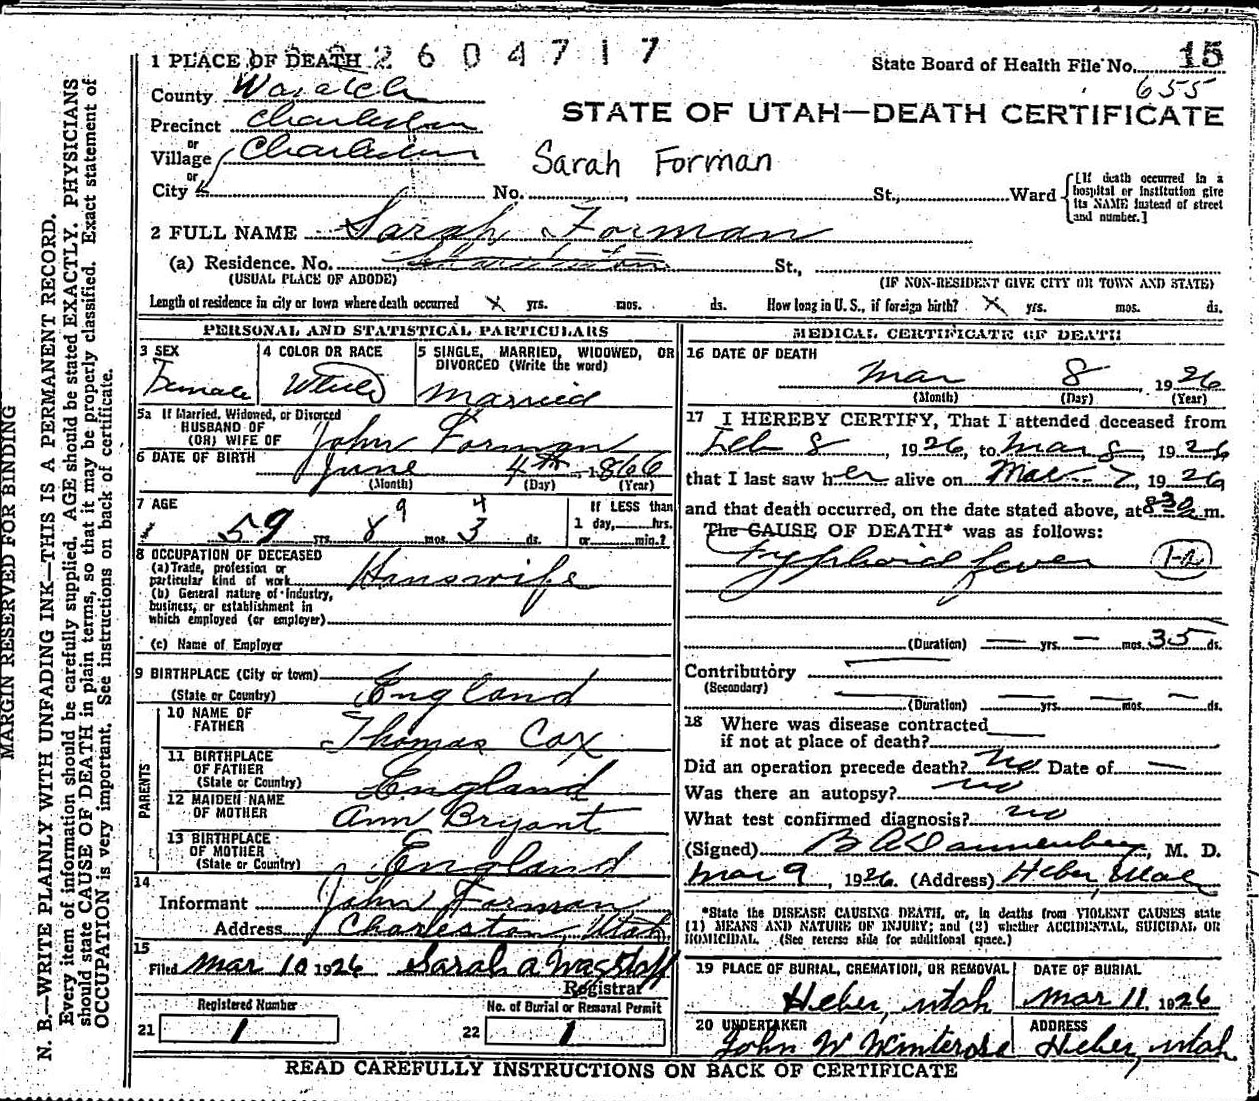 MARGIN RESERVED FOR BINDING
N. B.—WRITE PLAINLY WITH UNFADING INK—THIS IS A PERMANENT RECORD.
Every item of information should be carefully supplied. AGE should be stated EXACTLY. PHYSICIANS
should state CAUSE OF DEATH in plain terms, so that it may be properly classified. Exact statement of
OCCUPATION is very important. See instructions on back of certificate.
1 PLACE OF DEATH 2604717
State Board of Health File No. 15
655
County Wasatch
STATE OF UTAH—DEATH CERTIFICATE
Precinct Charleston
or
Village Charleston
Sarah Forman
or
City No. St., Ward
[If death occurred in a
hospital or institution give
its NAME instead of street
and number.]
2 FULL NAME Sarah Forman
(a) Residence. No. Charleston St.,
(USUAL PLACE OF ABODE) (IF NON-RESIDENT GIVE CITY OR TOWN AND STATE)
Length of residence in city or town where death occurred x yrs. mos. ds. How long in U. S., if foreign birth? x yrs. mos. ds.
PERSONAL AND STATISTICAL PARTICULARS
3 SEX
Female
4 COLOR OR RACE
White
5 SINGLE, MARRIED, WIDOWED, OR
DIVORCED (Write the word)
Married
5a If Married, Widowed, or Divorced
HUSBAND OF
(OR) WIFE OF John Forman
6 DATE OF BIRTH June 4th, 1866
(Month) (Day) (Year)
7 AGE
9 4
59 yrs. 8 mos. 3 ds.
If LESS than
1 day, hrs.
or min.?
8 OCCUPATION OF DECEASED
(a) Trade, profession or
particular kind of work Houswife
(b) General nature of Industry,
business, or establishment in
which employed (or employer)
(c) Name of Employer
9 BIRTHPLACE (City or town)
(State or Country) England
PARENTS
10 NAME OF
FATHER Thomas Cox
11 BIRTHPLACE
OF FATHER
(State or Country) England
12 MAIDEN NAME
OF MOTHER Ann Bryant
13 BIRTHPLACE
OF MOTHER
(State or Country) England
14
Informant John Forman
Address Charleston, Utah
15
Filed Mar 10 1926 Sarah A Wagstaff
Registrar
Registered Number
21 1
No. of Burial or Removal Permit
22 1
MEDICAL CERTIFICATE OF DEATH
16 DATE OF DEATH
Mar 8, 1926
(Month) (Day) (Year)
17 I HEREBY CERTIFY, That I attended deceased from
Feb 8, 1926, to Mar 8, 1926
that I last saw her alive on Mar 7, 1926
and that death occurred, on the date stated above, at 830 a m.
The CAUSE OF DEATH* was as follows:
Typhoid fever 1-a
(Duration) — yrs. — mos. 35 ds.
Contributory
(Secondary)
(Duration) — yrs. — mos. — ds.
18 Where was disease contracted
if not at place of death?
Did an operation precede death? no Date of —
Was there an autopsy? no
What test confirmed diagnosis? no
(Signed) B A Dannenberg, M. D.
Mar 9, 1926 (Address) Heber, Utah
*State the DISEASE CAUSING DEATH, or, in deaths from VIOLENT CAUSES state
(1) MEANS AND NATURE OF INJURY; and (2) whether ACCIDENTAL, SUICIDAL OR
HOMICIDAL. (See reverse side for additional space.)
19 PLACE OF BURIAL, CREMATION, OR REMOVAL
Heber, Utah
DATE OF BURIAL
Mar 11, 1926
20 UNDERTAKER
John W Winterose
ADDRESS
Heber, Utah
READ CAREFULLY INSTRUCTIONS ON BACK OF CERTIFICATE